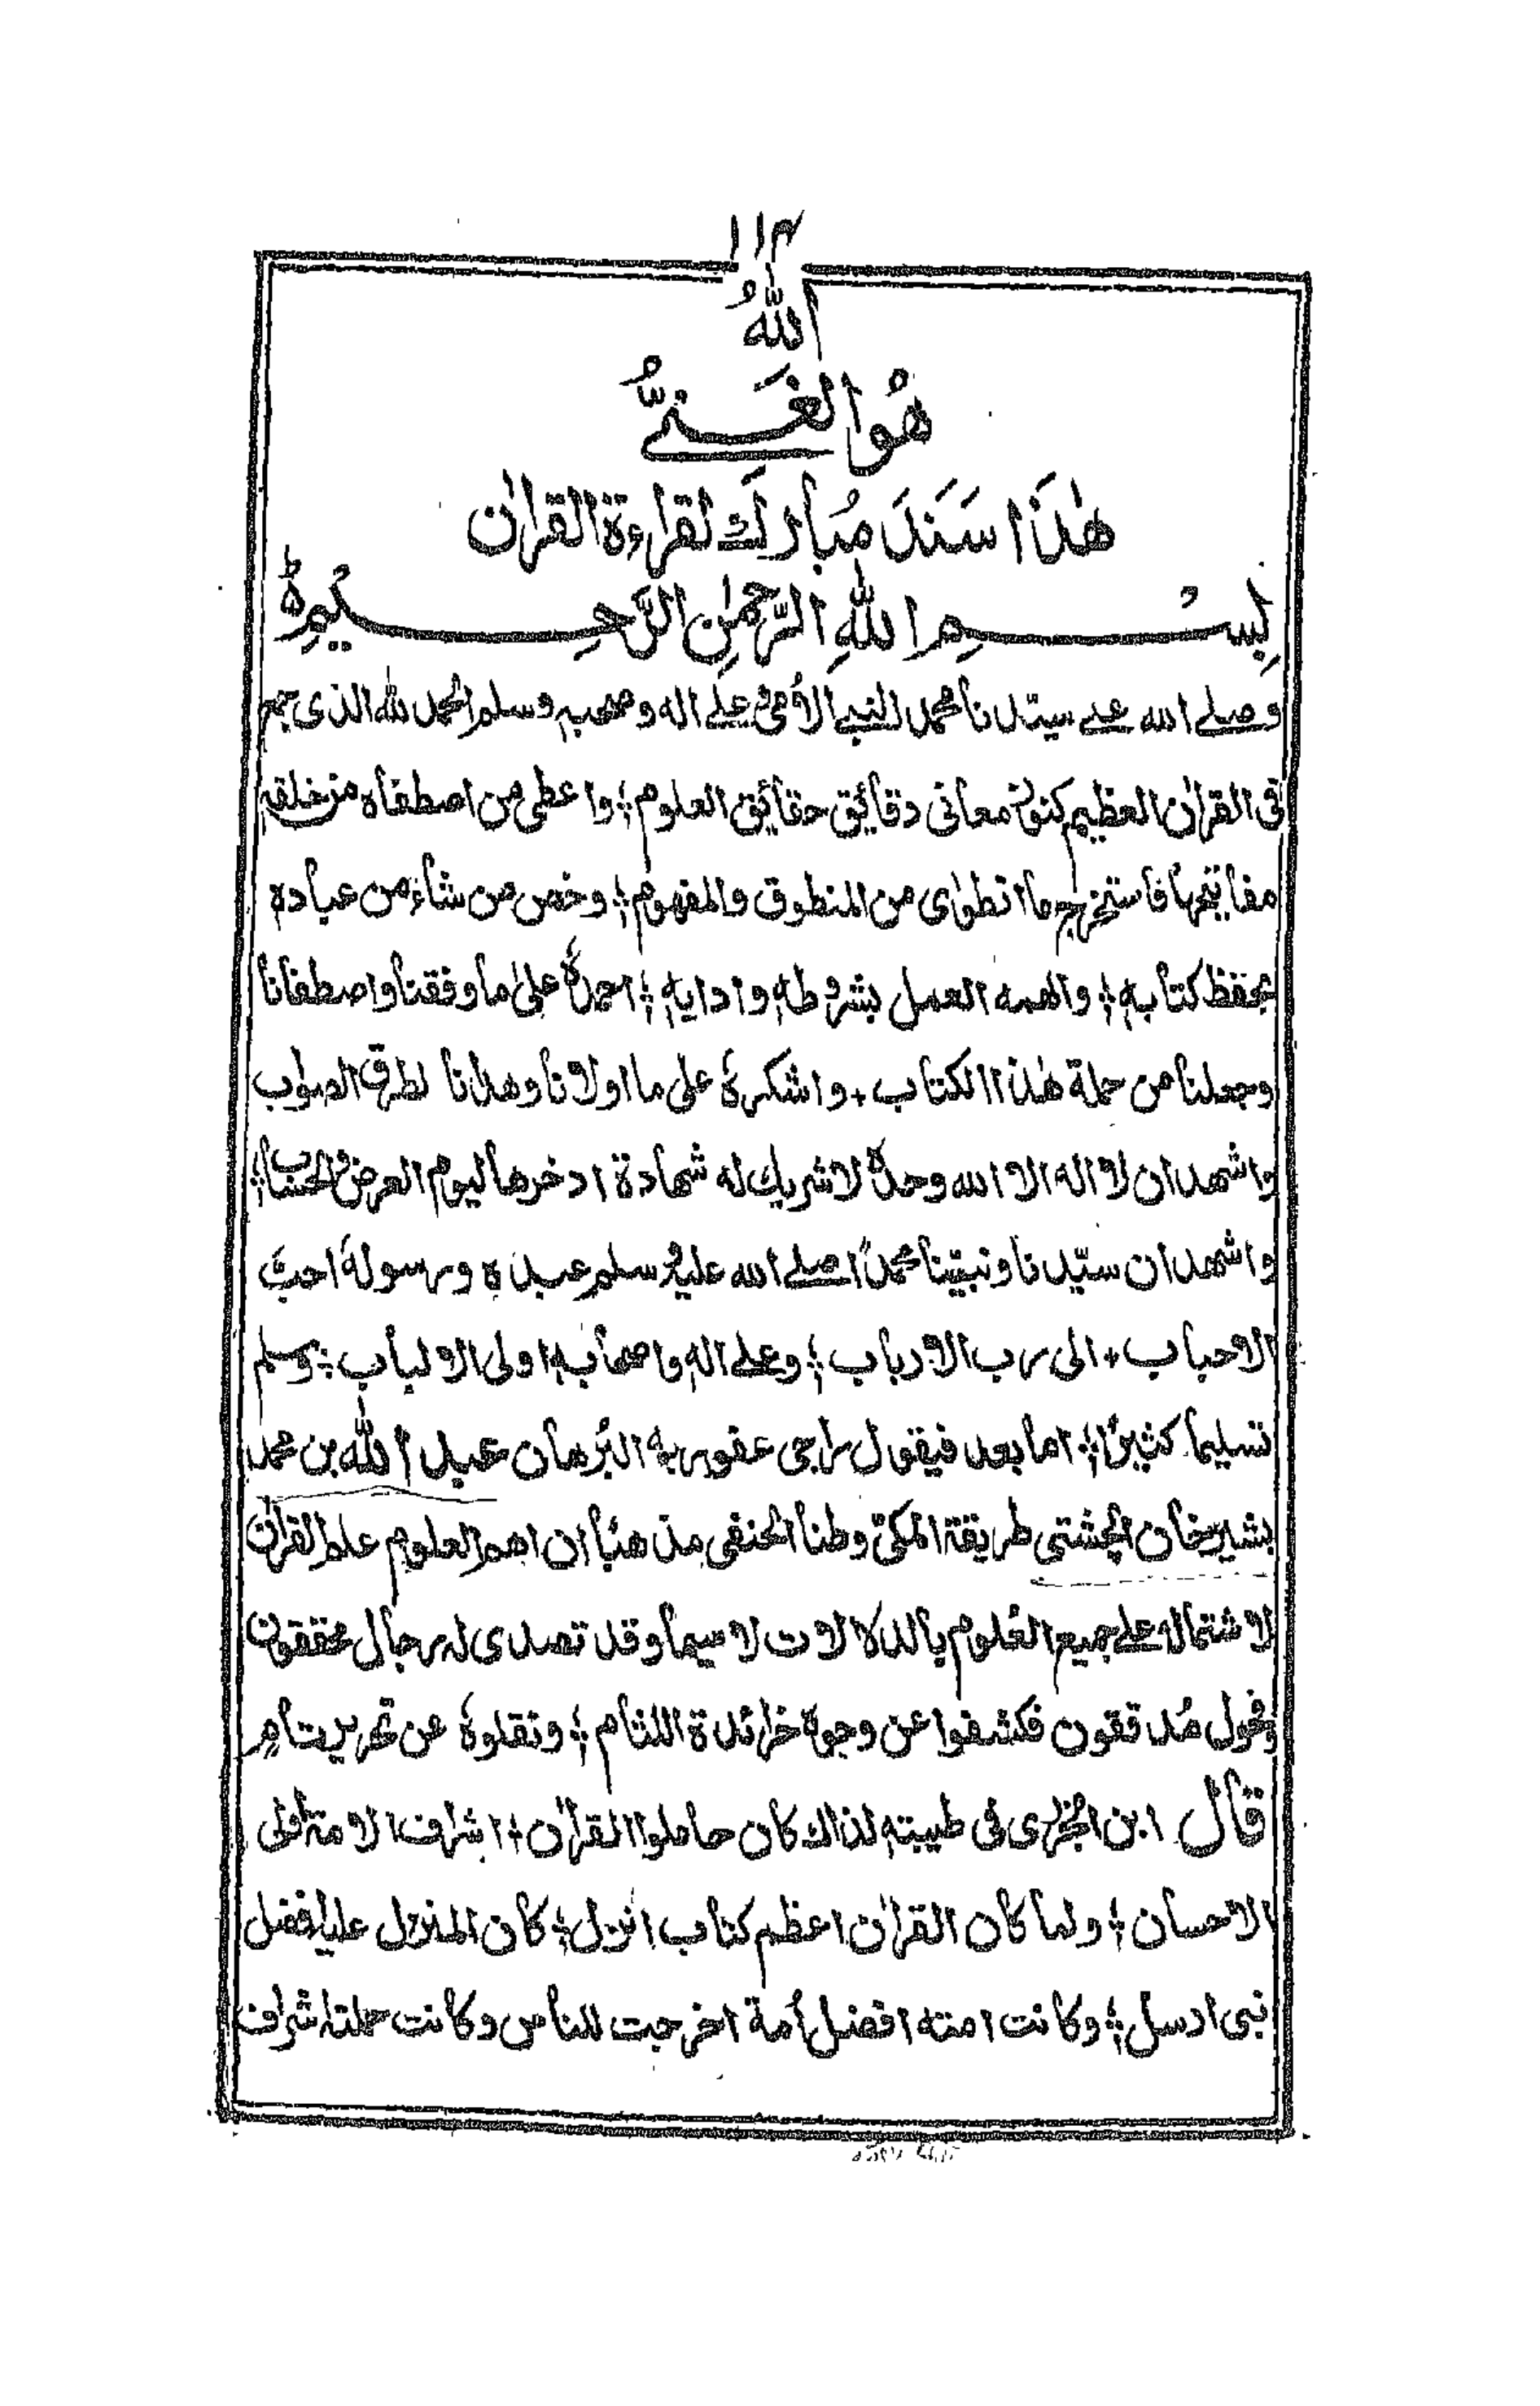 ۱۱۴
اللهُ
هُوَ الغَنِيُّ
هٰذَا سَنَدَ مُبَارَك لقراءة القراٰن
بِسْمِ اللهِ الرَّحمٰنِ الرَّحِيْمِ ة
وصلے الله علے سيّدنا محمد النبے الاُمی وعلے اله وصحبه وسلم الحمد لله الذی جمع
فی القراٰن العظيم كنوز معانی دقائيق حقائيق العلوم ؛ واعطی من اصطفاه من خلقه
مفاتيحها فاستخرج ما انطوٰی من المنطوق والمفهوم ؛ وخص من شاء من عباده
بحفظ كتابه ؛ والهمه العمل بشروطه وادابه ؛ احمدهٗ علیٰ ما وفقنا واصطفانا
وجعلنا من حملة هٰذا الكتاب + واشكرهٗ علی ما اولانا وهدانا لطرق الصوٰب
واشهد ان لا اله الا الله وحدهٗ لا شريك له شهادة ادخرها ليوم العرض والحساب ؛
واشهد ان سيّدنا ونبيّنا محمدًا صلے الله عليه وسلم عبده ورسولهٗ احبّ
الاحباب + الی رب الارباب ؛ وعلے اله واصحابه اولی الالباب ؛ وسلم
تسليما كثيرًا ؛ اما بعد فيقول راجی عفو ربه البُرهان عبد الله بن محمد
بشير خان الچشتی طريقة المكیّ وطنا الحنفی مذهبًا ان اهم العلوم علم القراٰن
لاشتماله علے جميع العُلوم بالدلالات لا سيما وقد تصدی له رجال محققون
وفحول مُدققون فكشفوا عن وجوه خرائدة اللثام ؛ ونقلوهٗ عن تحرير تام
قال ابن الجزری فی طيبته لذاك كان حاملوا القراٰن + اشراف الامة اولی
الاحسان ؛ ولما كان القراٰن اعظم كتاب انزل ؛ كان المنزل عليه افضل
نبی ارسل ؛ وكانت امته افضل اُمة اخرجت للناس وكانت حملته اشراف